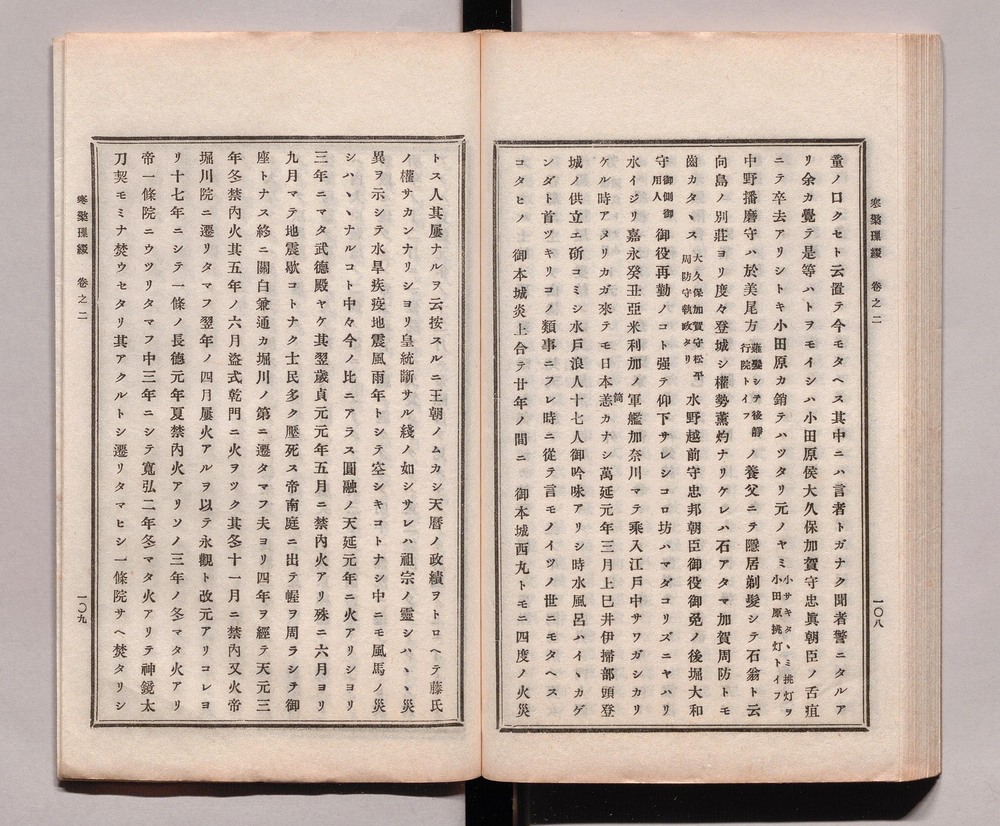 寒檠璅綴 卷之二
一〇八
童ノ口クセト云置テ今モタヘス其中ニハ言者トガナク聞者警ニタルア
リ余カ覺テ是等ハトヲモイシハ小田原侯大久保加賀守忠眞朝臣ノ舌疽
ニテ卒去アリシトキ小田原カ銷テハツタリ元ノヤミ小サキタヽミ挑灯ヲ小田原挑灯トイフ
中野播磨守ハ於美尾方薙髮シテ後靜行院トイフノ養父ニテ隱居剃髮シテ石翁ト云
向島ノ別莊ヨリ度々登城シ權勢薰灼ナリケレハ石アタマ加賀周防トモ
齒カタヽス大久保加賀守松平周防守執政タリ水野越前守忠邦朝臣御役御免ノ後堀大和
守御側御用人御役再勤ノコト强テ仰下サレシコロ坊ハマダコリズニヤハリ
水イジリ嘉永癸丑亞米利加ノ軍艦加奈川マテ乘入江戸中サワガシカリ
ケル時アメリカガ來テモ日本恙筒カナシ萬延元年三月上巳井伊掃部頭登
城ノ供立エ斫コミシ水戸浪人十七人御吟味アリシ時水風呂ハイヽカゲ
ンダト首ツキリコノ類事ニフレ時ニ從テ言モノイツノ世ニモタヘス
コタヒノ 御本城炎上合テ廿年ノ間ニ 御本城西丸トモニ四度ノ火災
トス人其屢ナルヲ云按スルニ王朝ノムカシ天曆ノ政績ヲトロヘテ藤氏
ノ權サカンナリシヨリ皇統斷サル綫ノ如シサレハ祖宗ノ靈シハヽヽ災
異ヲ示シテ水旱疾疫地震風雨年トシテ空シキコトナシ中ニモ風馬ノ災
シハヽヽナルコト中々今ノ比ニアラス圓融ノ天延元年ニ火アリシヨリ
三年ニマタ武德殿ヤケ其翌歲貞元元年五月ニ禁內火アリ殊ニ六月ヨリ
九月マテ地震歇コトナク士民多ク壓死ス帝南庭ニ出テ幄ヲ周ラシテ御
座トナス終ニ關白兼通カ堀川ノ第ニ遷タマフ夫ヨリ四年ヲ經テ天元三
年冬禁內火其五年ノ六月盜式乾門ニ火ヲツク其冬十一月ニ禁內又火帝
堀川院ニ遷リタマフ翌年ノ四月屢火アルヲ以テ永觀ト改元アリコレヨ
リ十七年ニシテ一條ノ長德元年夏禁內火アリソノ三年ノ冬マタ火アリ
帝一條院ニウツリタマフ中三年ニシテ寬弘二年冬マタ火アリテ神鏡太
刀契モミナ焚ウセタリ其アクルトシ遷リタマヒシ一條院サヘ焚タリシ
寒檠璅綴 卷之二
一〇九